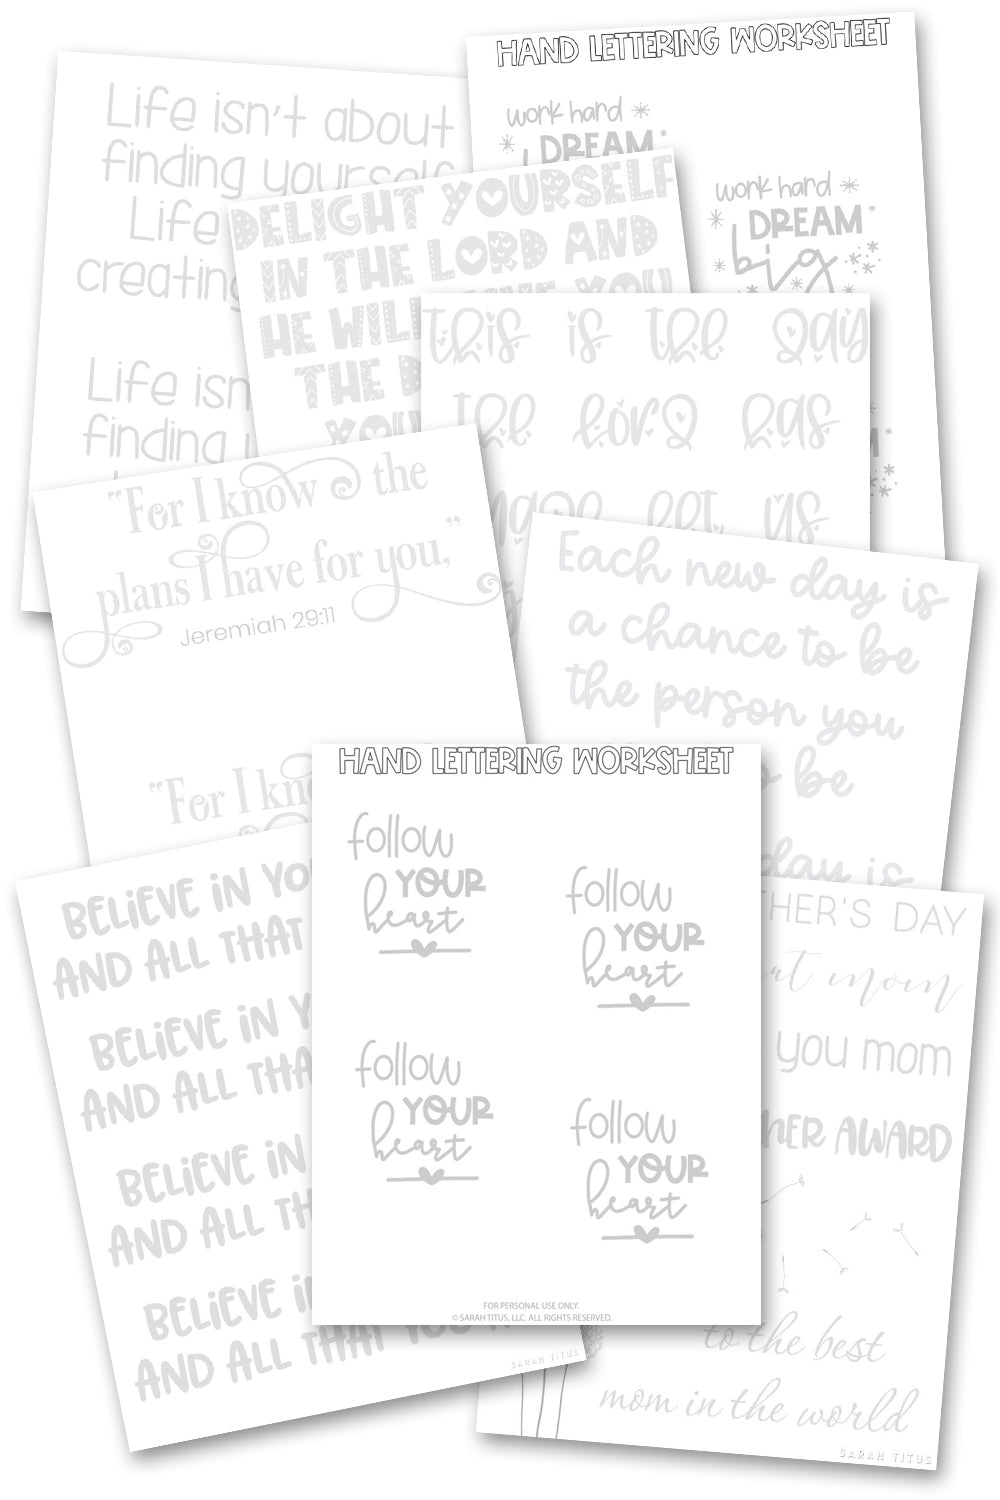 Life isn't about
finding yourself
Life
creating
Life isn
finding
HAND LETTERING WORKSHEET
work hard
DREAM
work hard
DREAM
big
DELIGHT YOURSELF
IN THE LORD AND
HE WILL GIVE YOU
THE
YOU
this is the day
the lord has
made let us
"For I know the
plans I have for you,"
Jeremiah 29:11
"For I know
Each new day is
a chance to be
the person you
to be
day is
BELIEVE IN YO
AND ALL THAT
BELIEVE IN Y
AND ALL THA
BELIEVE IN
AND ALL TH
BELIEVE IN
AND ALL THAT YOU
SARAH TITUS
HAND LETTERING WORKSHEET
follow
YOUR
heart
follow
YOUR
heart
follow
YOUR
heart
follow
YOUR
heart
FOR PERSONAL USE ONLY.
© SARAH TITUS, LLC. ALL RIGHTS RESERVED.
THER'S DAY
at mom
you mom
HER AWARD
to the best
mom in the world
SARAH TITUS